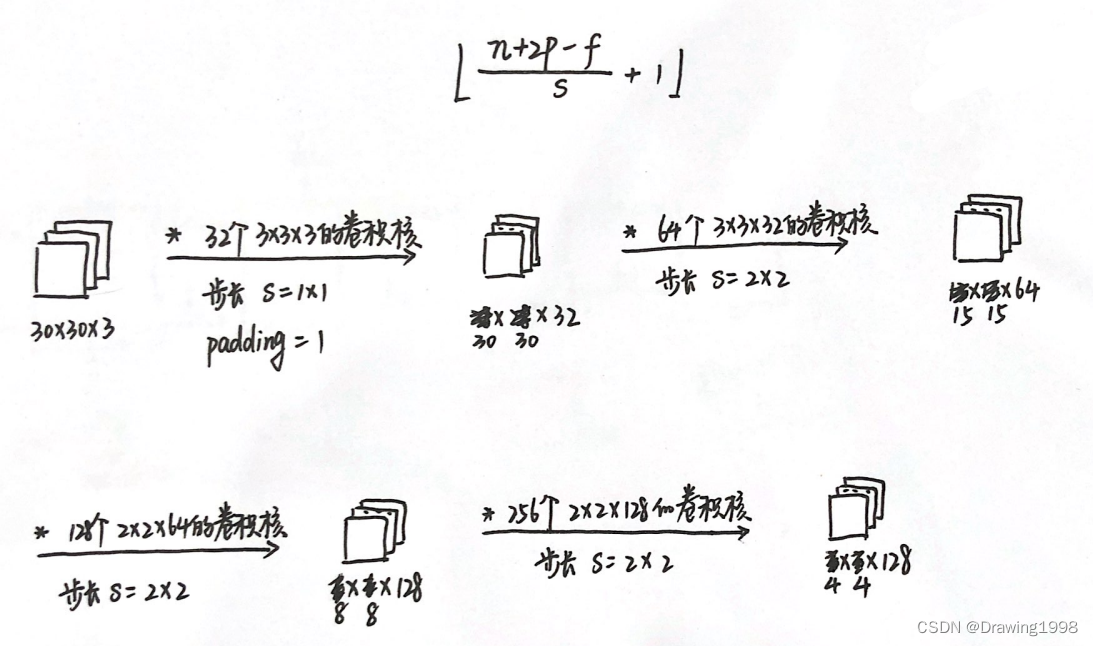 ⌊(n+2p-f)/s + 1⌋
* 32个 3×3×3的卷积核
步长 S=1×1
padding = 1
30×30×3
×  × 32
30 30
* 64个 3×3×32的卷积核
步长 S=2×2
×  × 64
15 15
* 128个 2×2×64的卷积核
步长 S=2×2
×  × 128
8 8
* 256个 2×2×128的卷积核
步长 S=2×2
×  × 128
4 4
CSDN @Drawing1998